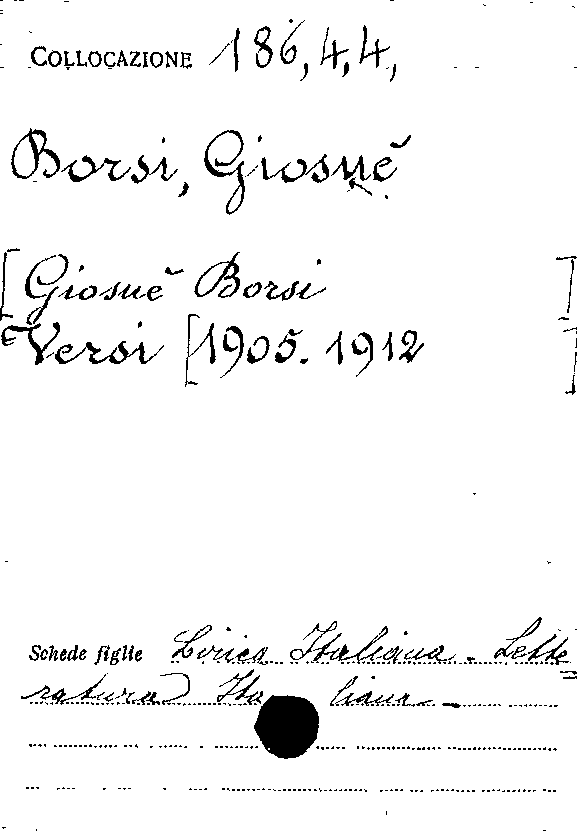 COLLOCAZIONE 186,4,4,
Borsi, Giosuè
[Giosuè Borsi]
Versi [1905. 1912]
Schede figlie Lirica Italiana - Lette
ratura Italiana -